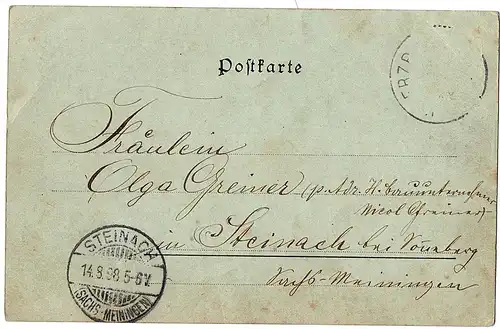 Postkarte
ERZB
Fräulein
Olga Greiner (p. Adr. H. Bauunternehmer
Nicol Greiner)
in Steinach bei Sonneberg
Sachs-Meiningen
STEINACH
14.8.98.5-6V.
(SACHS-MEININGEN)